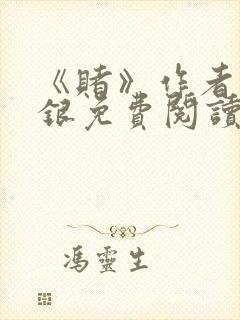 《賭》作者
銀免費閱讀
馮靈生